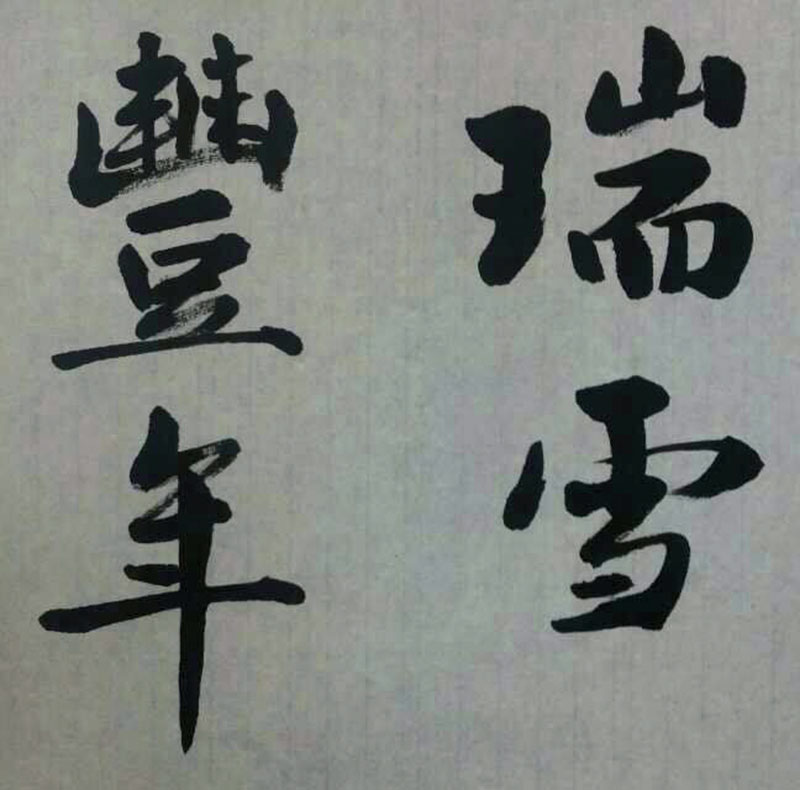 瑞雪
豐年